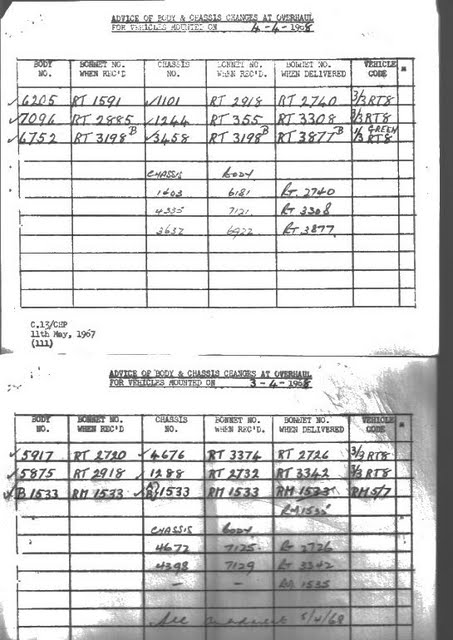 ADVICE OF BODY & CHASSIS CHANGES AT OVERHAUL
FOR VEHICLES MOUNTED ON 4-4-1968
BODY NO. BONNET NO. WHEN REC'D CHASSIS NO. BONNET NO. WHEN REC'D. BONNET NO. WHEN DELIVERED VEHICLE CODE *
✓6205 RT 1591 ✓1101 RT 2918 RT 2740 3/3RT8
✓7096 RT 2885 ✓1244 RT 355 RT 3308 3/3RT8
✓6752 RT 3198B ✓3458 RT 3198B RT 3877B GREEN 3RT8
CHASSIS BODY
1603 6181 RT 2740
4335 7121 RT 3308
3637 6922 RT 3877
C.13/CHP
11th May, 1967
(111)
ADVICE OF BODY & CHASSIS CHANGES AT OVERHAUL
FOR VEHICLES MOUNTED ON 3-4-1968
BODY NO. BONNET NO. WHEN REC'D CHASSIS NO. BONNET NO. WHEN REC'D. BONNET NO. WHEN DELIVERED VEHICLE CODE *
✓5917 RT 2720 ✓4676 RT 3374 RT 2726 3/3RT8
✓5875 RT 2918 ✓1288 RT 2732 RT 3342 3/3RT8
B1533 RM 1533 1533 RM 1533 RM 1533 RM 5/7
RM 1535
CHASSIS BODY
4672 7125 RT 2726
4398 7129 RT 3342
- - RM 1535
See 5/4/68